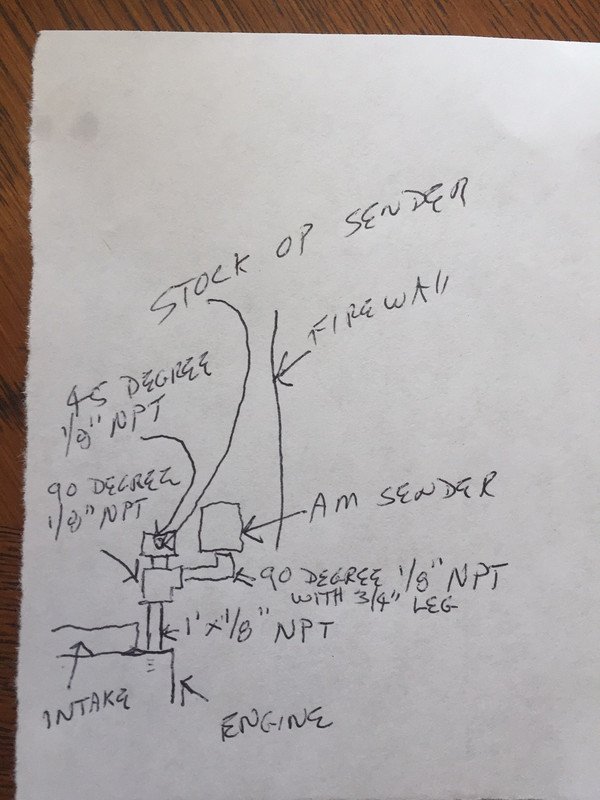 STOCK OP SENDER
FIREWALL
45 DEGREE
1/8" NPT
90 DEGREE
1/8" NPT
AM SENDER
90 DEGREE 1/8" NPT
WITH 3/4" LEG
1" x 1/8" NPT
INTAKE
ENGINE